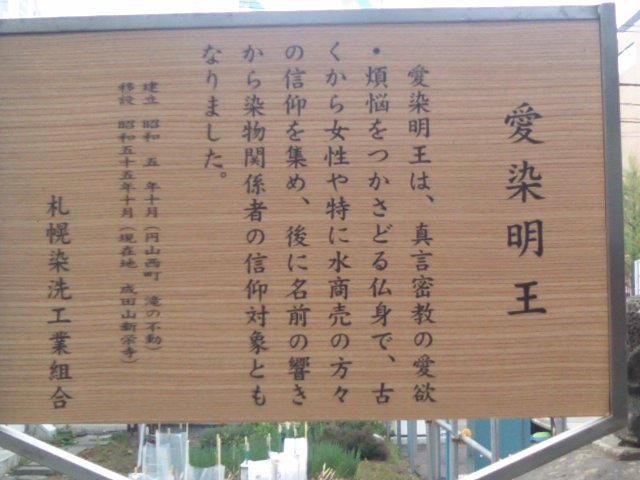 愛染明王
愛染明王は、真言密教の愛欲
・煩悩をつかさどる仏身で、古
くから女性や特に水商売の方々
の信仰を集め、後に名前の響き
から染物関係者の信仰対象とも
なりました。
建立 昭和 五 年十月(円山西町 滝の不動)
移設 昭和五十五年十月(現在地 成田山新栄寺)
札幌染洗工業組合